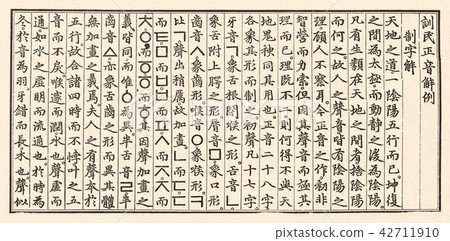 訓民正音解例
制字解
天地之道一陰陽五行而已坤復
之間為太極而動靜之後為陰陽
凡有生類在天地之間者捨陰陽
而何之故人之聲音皆有陰陽之
理顧人不察耳今正音之作初非
智營而力索但因其聲音而極其
理而已理既不二則何得不與天
地鬼神同其用也正音二十八字
各象其形而制之初聲凡十七字
牙音ㄱ象舌根閉喉之形舌音ㄴ
象舌附上腭之形脣音ㅁ象口形
齒音ㅅ象齒形喉音ㅇ象喉形ㅋ
比ㄱ聲出稍厲故加畫ㄴ而ㄷㄷ
而ㅌㅁ而ㅂㅂ而ㅍㅅ而ㅈㅈ而
ㅊㅇ而ㆆㆆ而ㅎ其因聲加畫之
義皆同而唯ㆁ為異半舌音ㄹ半
齒音ㅿ亦象舌齒之形而異其體
無加畫之義焉夫人之有聲本於
五行故合諸四時而不悖叶之五
音而不戾喉邃而潤水也聲虛而
通如水之虛明而流通也於時為
冬於音為羽牙錯而長木也聲
42711910